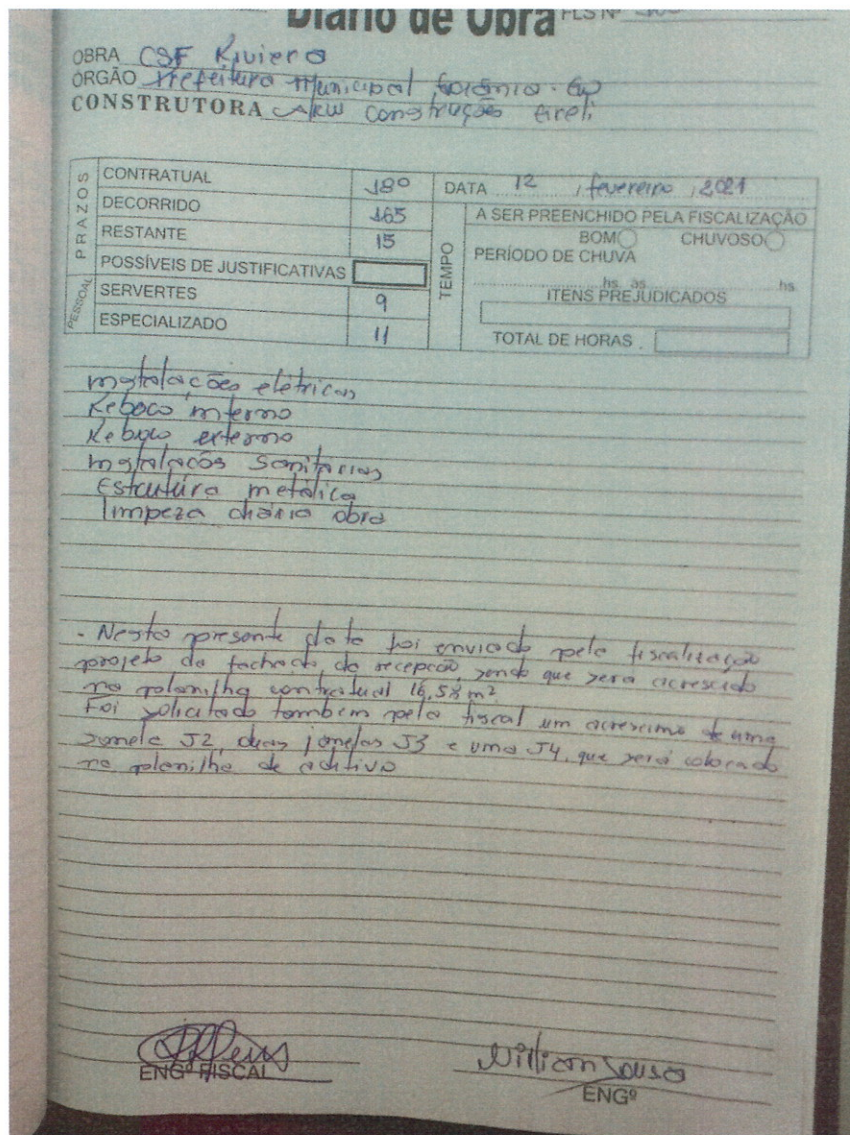 Diário de Obra FLS Nº
OBRA CSF Riviera
ORGÃO Prefeitura Municipal Goiânia - Go
CONSTRUTORA Construções Eireli
PRAZOS
CONTRATUAL 180
DECORRIDO 165
RESTANTE 15
POSSÍVEIS DE JUSTIFICATIVAS
PESSOAL
SERVERTES 9
ESPECIALIZADO 11
DATA 12 / fevereiro / 2021
TEMPO
A SER PREENCHIDO PELA FISCALIZAÇÃO
BOM CHUVOSO
PERÍODO DE CHUVA
hs. as hs.
ITENS PREJUDICADOS
TOTAL DE HORAS
instalações elétricas
Reboco interno
Reboco externo
instalações Sanitárias
Estrutura metálica
limpeza diária obra
- Nesta presente data foi enviado pela fiscalização
projeto da fachada da recepção, sendo que será acrescido
na planilha contratual 16,58 m²
Foi solicitado também pela fiscal um acrescimo de uma
janela J2, duas janelas J3 e uma J4, que será colocado
na planilha de aditivo
ENGº FISCAL
Willian Sousa
ENGº